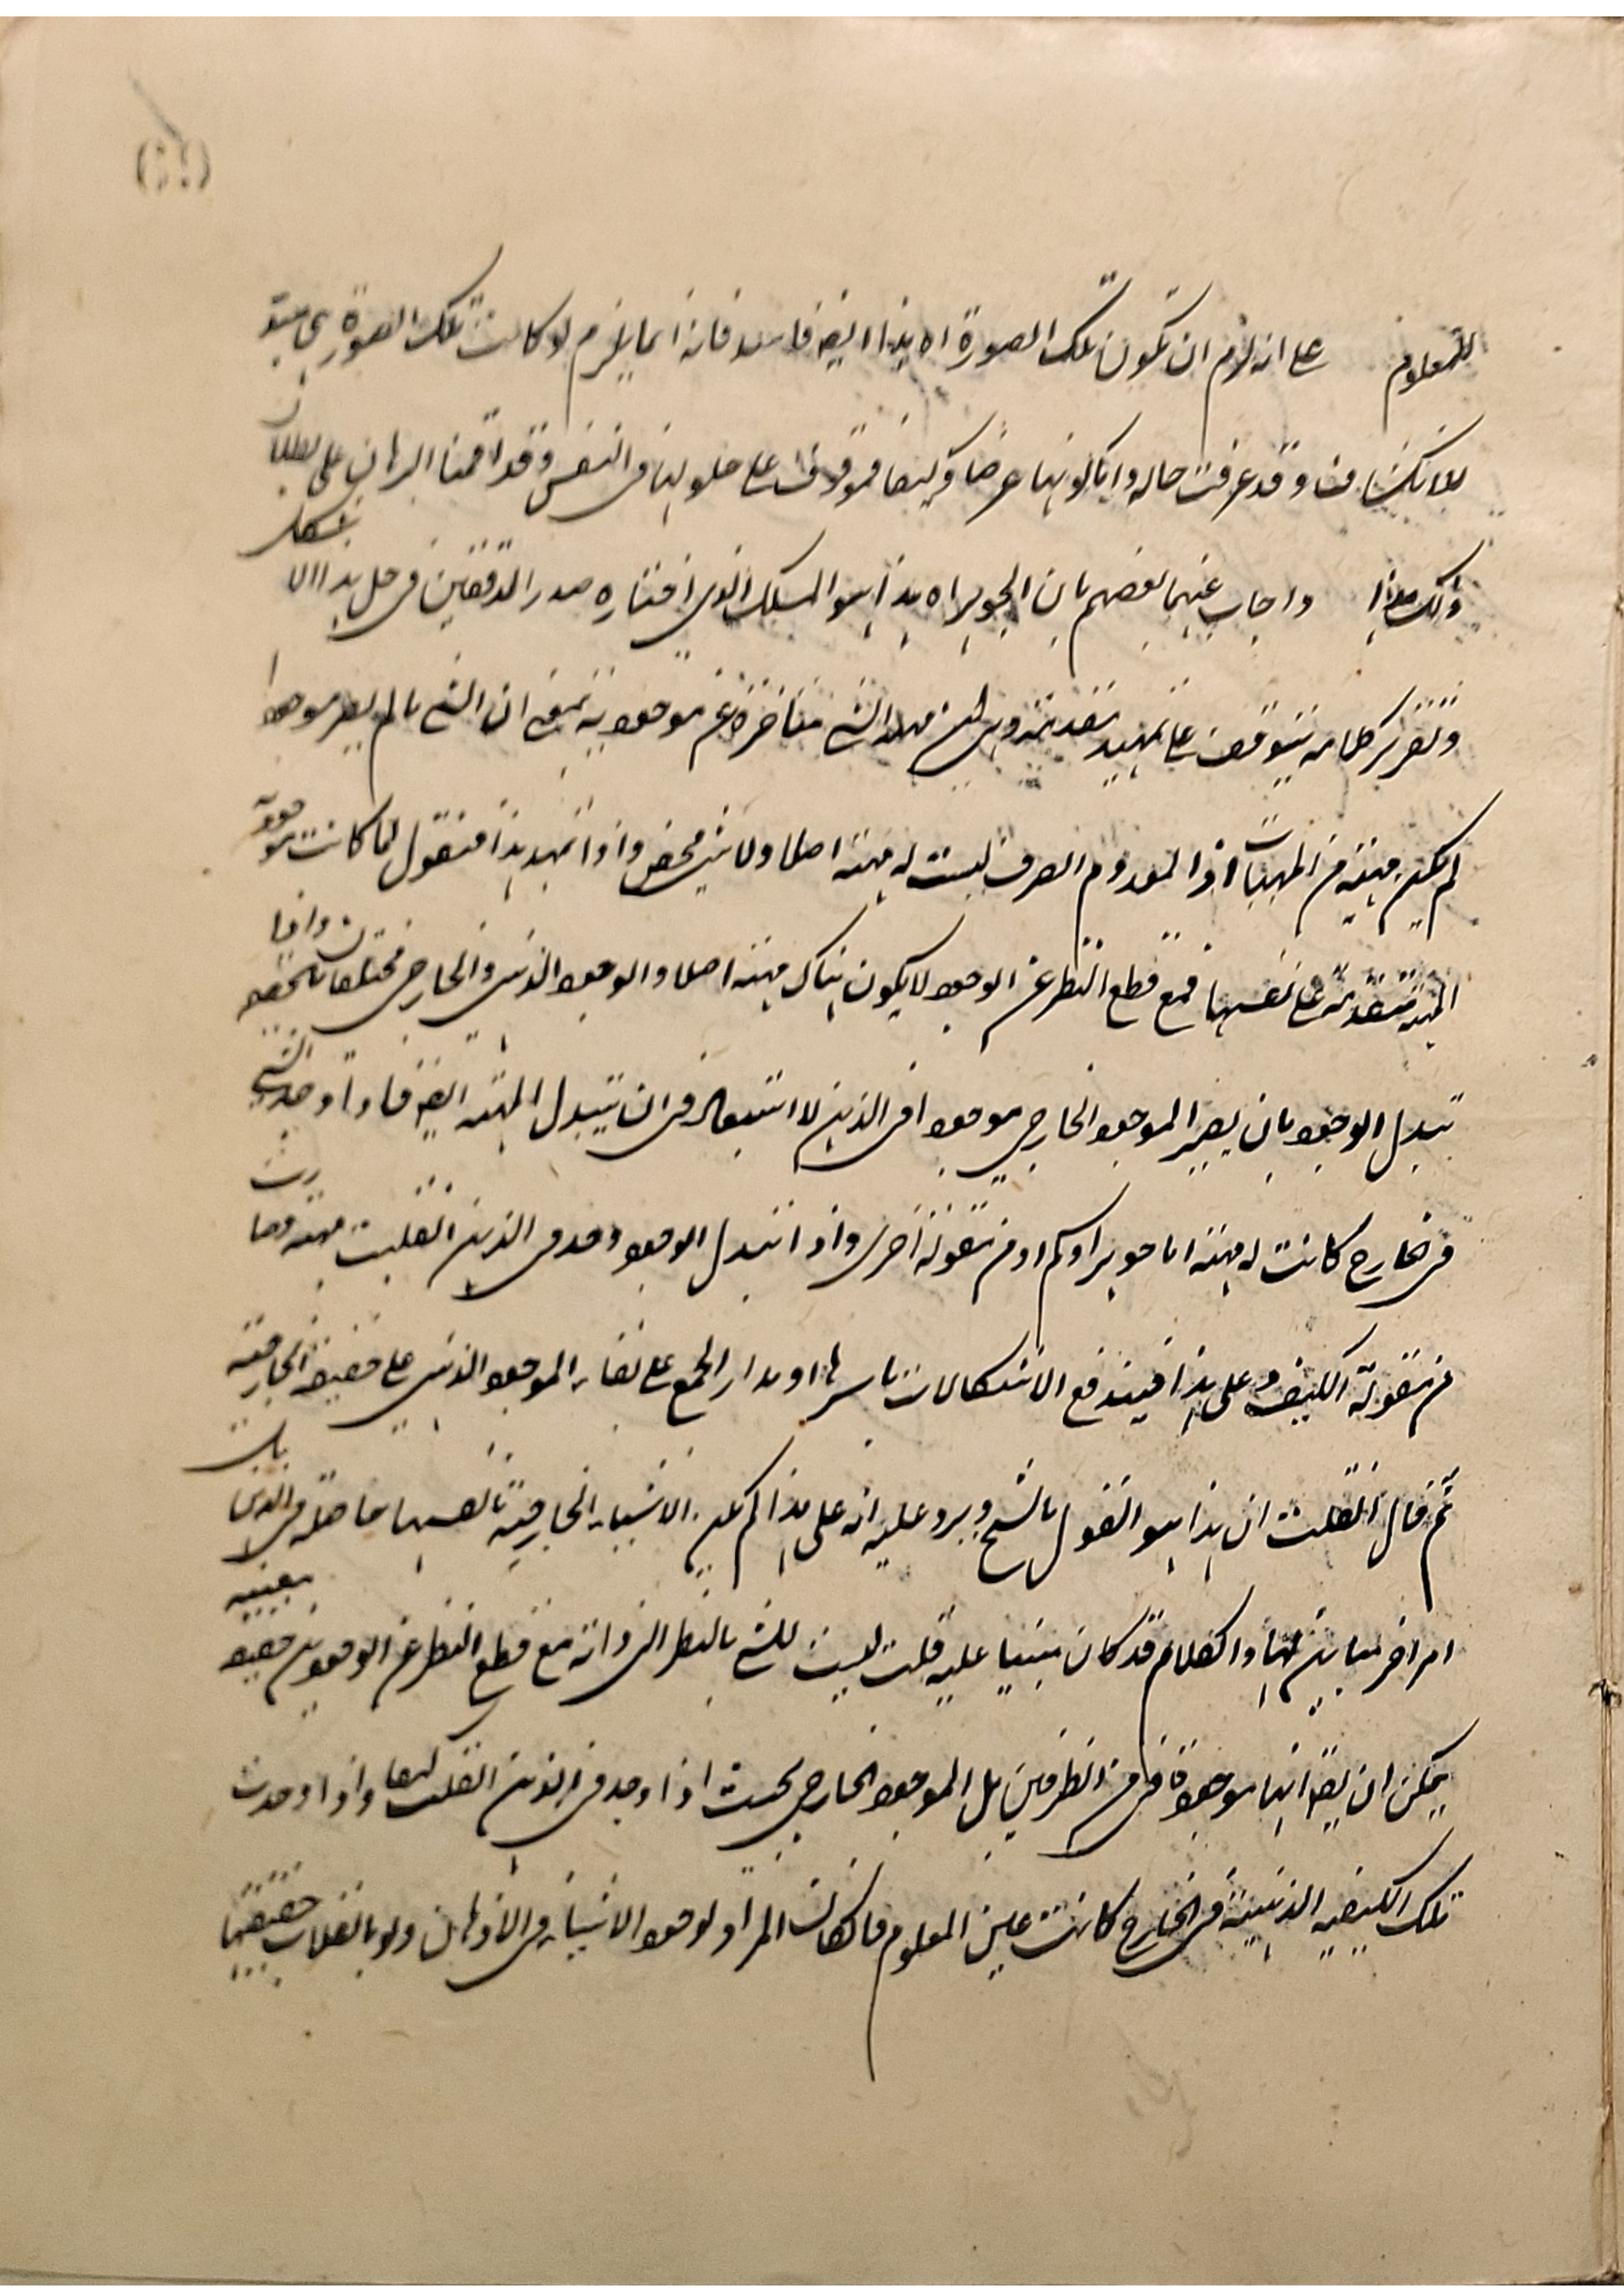 للمعلوم على انه لزم ان تكون تلك الصورة اه هذا ايضا فاسد فانه انما يلزم لو كانت تلك الصورة
للانكشاف وقد عرفت حاله واما كونها عرضا وكيفا فموقوف على حلولها فى النفس وقد اقمنا البرهان على بطلان
ذلك واجاب عنهما بعضهم بان الجوهر اه هذا هو المسلك الذى اختاره صدر المدققين فى حل هذا الاشكال
وتقرير كلامه يتوقف على تمهيد مقدمة وهى ان مهية الشى متاخرة عن موجوديته بمعنى ان الشى ما لم يصر موجودا
لم يكن مهية من المهيات اذ المعدوم الصرف ليست له مهية اصلا ولا شى محض واذا تمهد هذا فنقول لما كانت موجودية
المهية متقدمة على نفسها فمع قطع النظر عن الوجود لا يكون هناك مهية اصلا والوجود الذهنى والخارجى مختلفان بالحقيقة واذا
تبدل الوجود بان يصير الموجود الخارجى موجودا فى الذهن لا استبعاد فى ان يتبدل المهية ايضا فاذا وجد الشى
فى الخارج كانت له مهية اما جوهر او كم او من مقولة اخرى واذا تبدل الوجود ووجد فى الذهن انقلبت مهيته وصارت
من مقولة الكيف وعلى هذا فيندفع الاشكالات باسرها اذ مدار الجمع على بقاء الموجود الذهنى على حقيقة الخارجية
ثم قال ان قلت ان هذا هو القول بالشبح ويرد عليه انه على هذا لم يكن الاشياء الخارجية بانفسها حاصلة فى الذهن بل
امر اخر مباين لها والكلام قد كان مبنيا عليه قلت ليست للشى بالنظر الى ذاته مع قطع النظر عن الوجودين حقيقة معينة
يمكن ان يقال انها موجودة فى الظرفين بل الموجود الخارجى بحيث اذا وجد فى الذهن انقلب كيفا واذا وجدت
تلك الكيفيه الذهنية فى الخارج كانت عين المعلوم فان كان المراد لوجود الاشياء فى الاذهان ولو بانقلاب حقيقتها